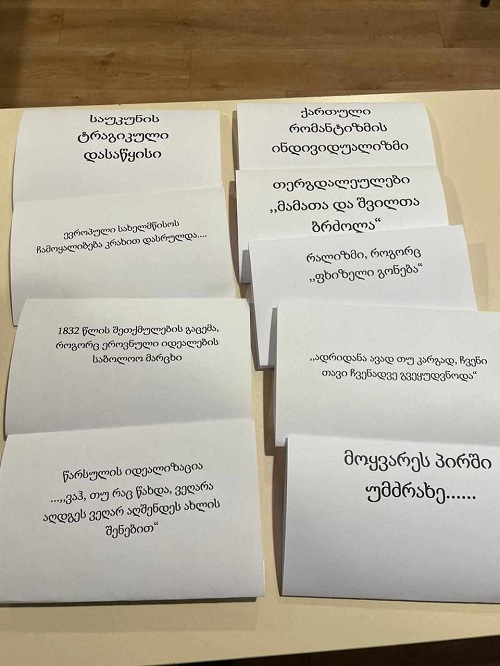 საუკუნის
ტრაგიკული
დასაწყისი
ევროპული სახელმწისოს
ჩამოყალიბება კრახით დასრულდა....
1832 წლის შეთქმულების გაცემა,
როგორც ეროვნული იდეალების
საბოლოო მარცხი
წარსულის იდეალიზაცია
...,,ვაჰ, თუ რაც წახდა, ვეღარა
აღდგეს ვეღარ აღშენდეს ახლის
შენებით“
ქართული
რომანტიზმის
ინდივიდუალიზმი
თერგდალეულები
,,მამათა და შვილთა
ბრძოლა“
რალიზმი, როგორც
,,ფხიზელი გონება“
,,ადრიდანა ავად თუ კარგად, ჩვენი
თავი ჩვენადვე გვეყუდვნოდა“
მოყვარეს პირში
უმძრახე......